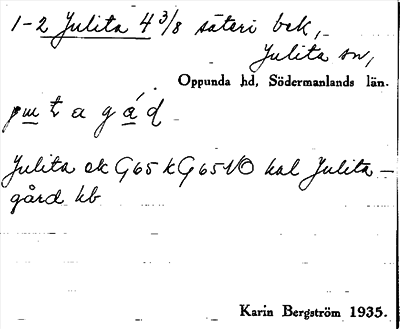 1-2 Julita 4 3/8 säteri bek,
Julita sn,
Oppunda hd, Södermanlands län.
Julita ek G65 k G65NO kal Julita-
gård hb
Karin Bergström 1935.